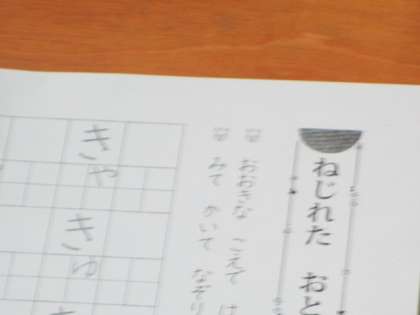 ねじれた おと
おおきな こえで は
みて かいて なぞり
きゃ
きゅ